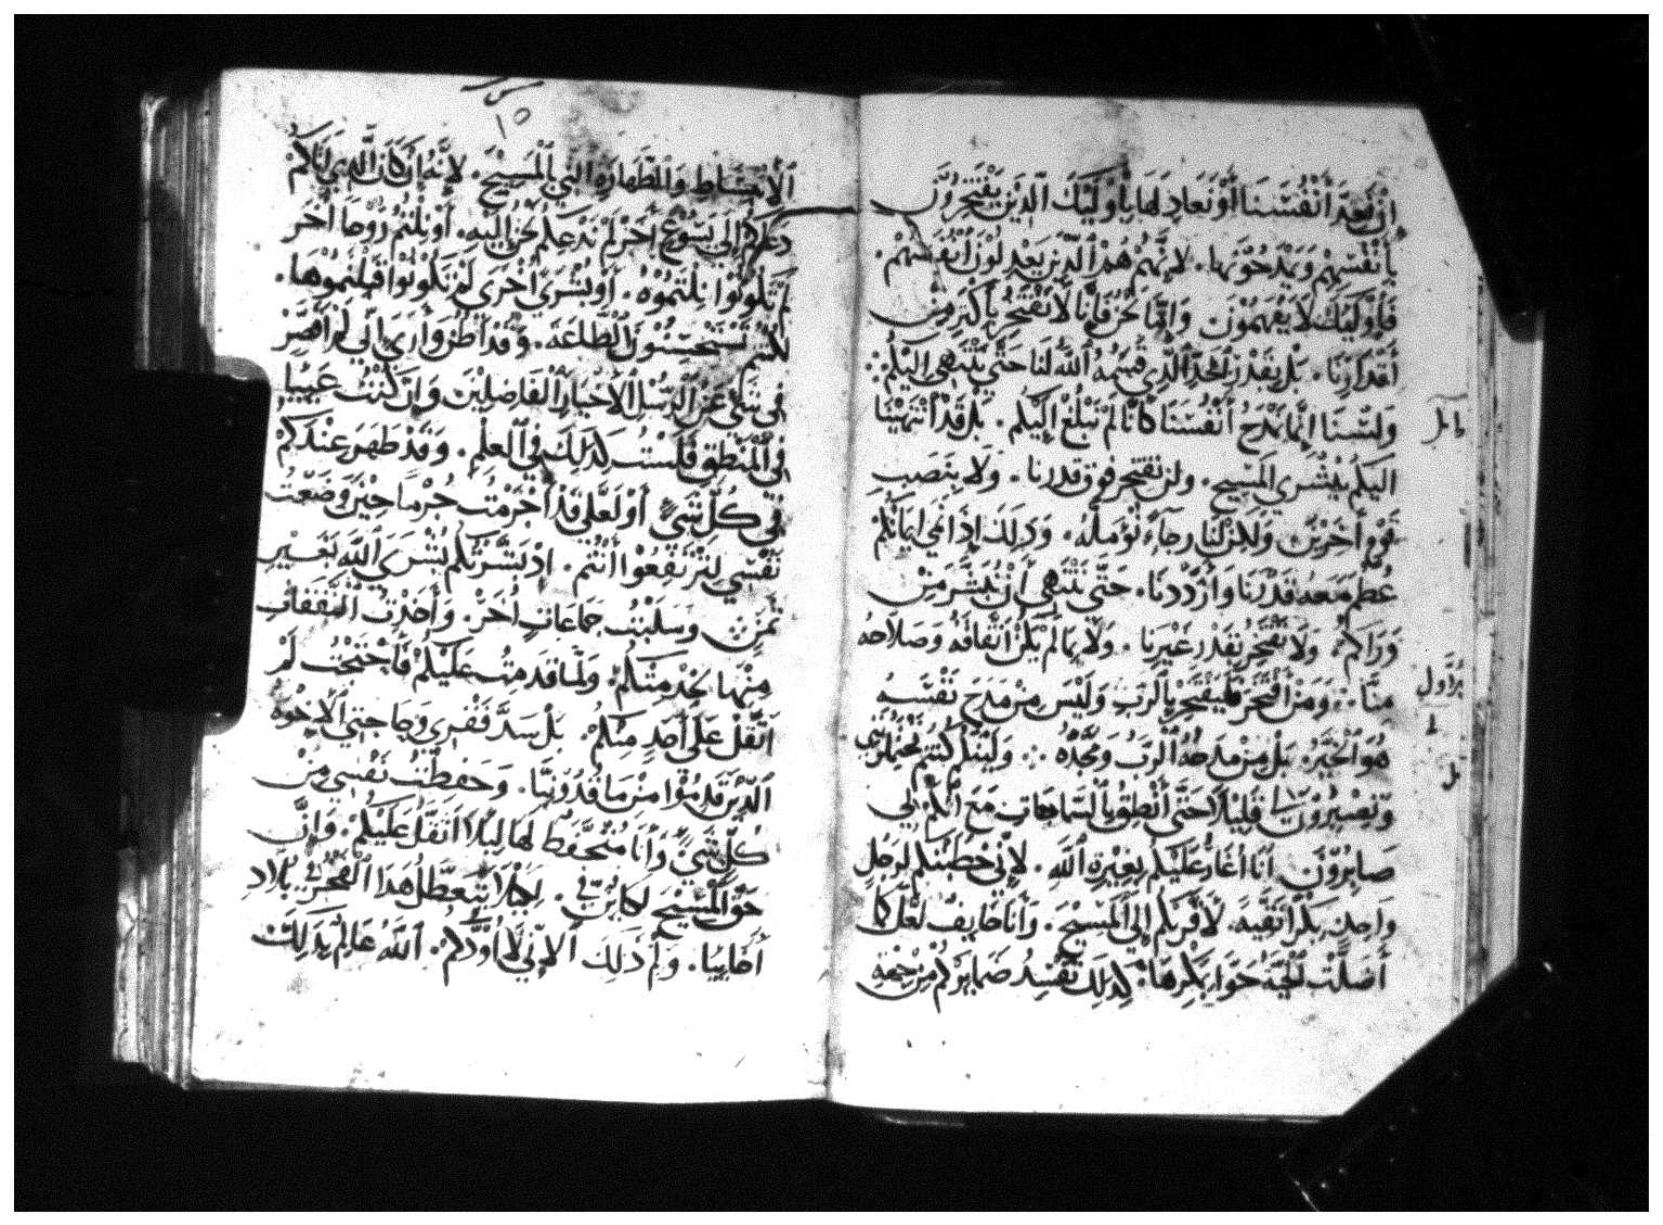 ان نعد أنفسنا أو نعادلها بأوليك الذين يفتخرون
بأنفسهم ويمدحونها. لانهم هم الذين يعدلون أنفسهم.
فاوليك لا يفهمون وانما نحن فانا لا نفتخر بأكثر من
أقدارنا. بل بقدر الحد الذي قسمه الله لنا حتى ننتهي اليكم
ولسنا انما نمدح أنفسنا كانا لم نبلغ اليكم. بل قد انتهينا
اليكم ببشرى المسيح. ولن نفتخر فوق قدرنا. ولا بنصب
قوم اخرين ولكن لنا رجاء نؤمله. وذلك اذا نمي ايمانكم
عظم معه قدرنا وازددنا. حتى ننتهي أن نبشر من
وراكم. ولا نفتخر بقدر غيرنا. ولا بما لم يكن اتفاقه وصلاحه
منا. ومن افتخر فليفتخر بالرب وليس من مدح نفسه
هو الخير. بل من مدحه الرب ومجده. وليتكم كنتم تحتملونني
وتصبرون قليلا حتى أنطق بالسماجات مع أنكم لي
صابرون. أنا أغار عليكم بغيرة الله. لاني خطبتكم لرجل
واحد بكرا نقية. لأقربكم الى المسيح. وأنا خايف لعل كما
أضلت الحية حوا بمكرها. كذلك تفسد ضمايركم من جهة
١٥
الانبساط والطهارة التي بالمسيح. لانه ان كان الذي أتاكم
دعاكم إلى يسوع اخر لم ندعكم نحن اليه. أو نلتم روحا أخر
لم تكونوا نلتموه. أو بشرى أخرى لم تكونوا قبلتموها.
لكنتم تستحسنون الطاعة. وقد أظن وأرى اني لم أقصر
في شي عن الرسل الاخيار الفاضلين وان كنت عيييا
في المنطق فلست كذلك في العلم. وقد ظهر عندكم
في كل شي أو لعلي قد أجرمت جرما حين وضعت
نفسي لترتفعوا أنتم. اذ بشرتكم بشرى الله بغير
ثمن وسلبت جماعات أخر. وأخذت النفقات
منها لخدمتكم. ولما قدمت عليكم فأحتجت لم
أثقل على أحد منكم. بل سد فقري وحاجتي الاخوة
الذين قدموا من ماقدونيا. وحفظت نفسي من
كل شي وأنا متحفظ لها ليلا اثقل عليكم. وان
حق المسيح لكاين في. لكيلا يتعطل هذا الفخر في بلاد
أخاييا. ولم ذلك ألاني لا أودكم. الله عالم بذلك